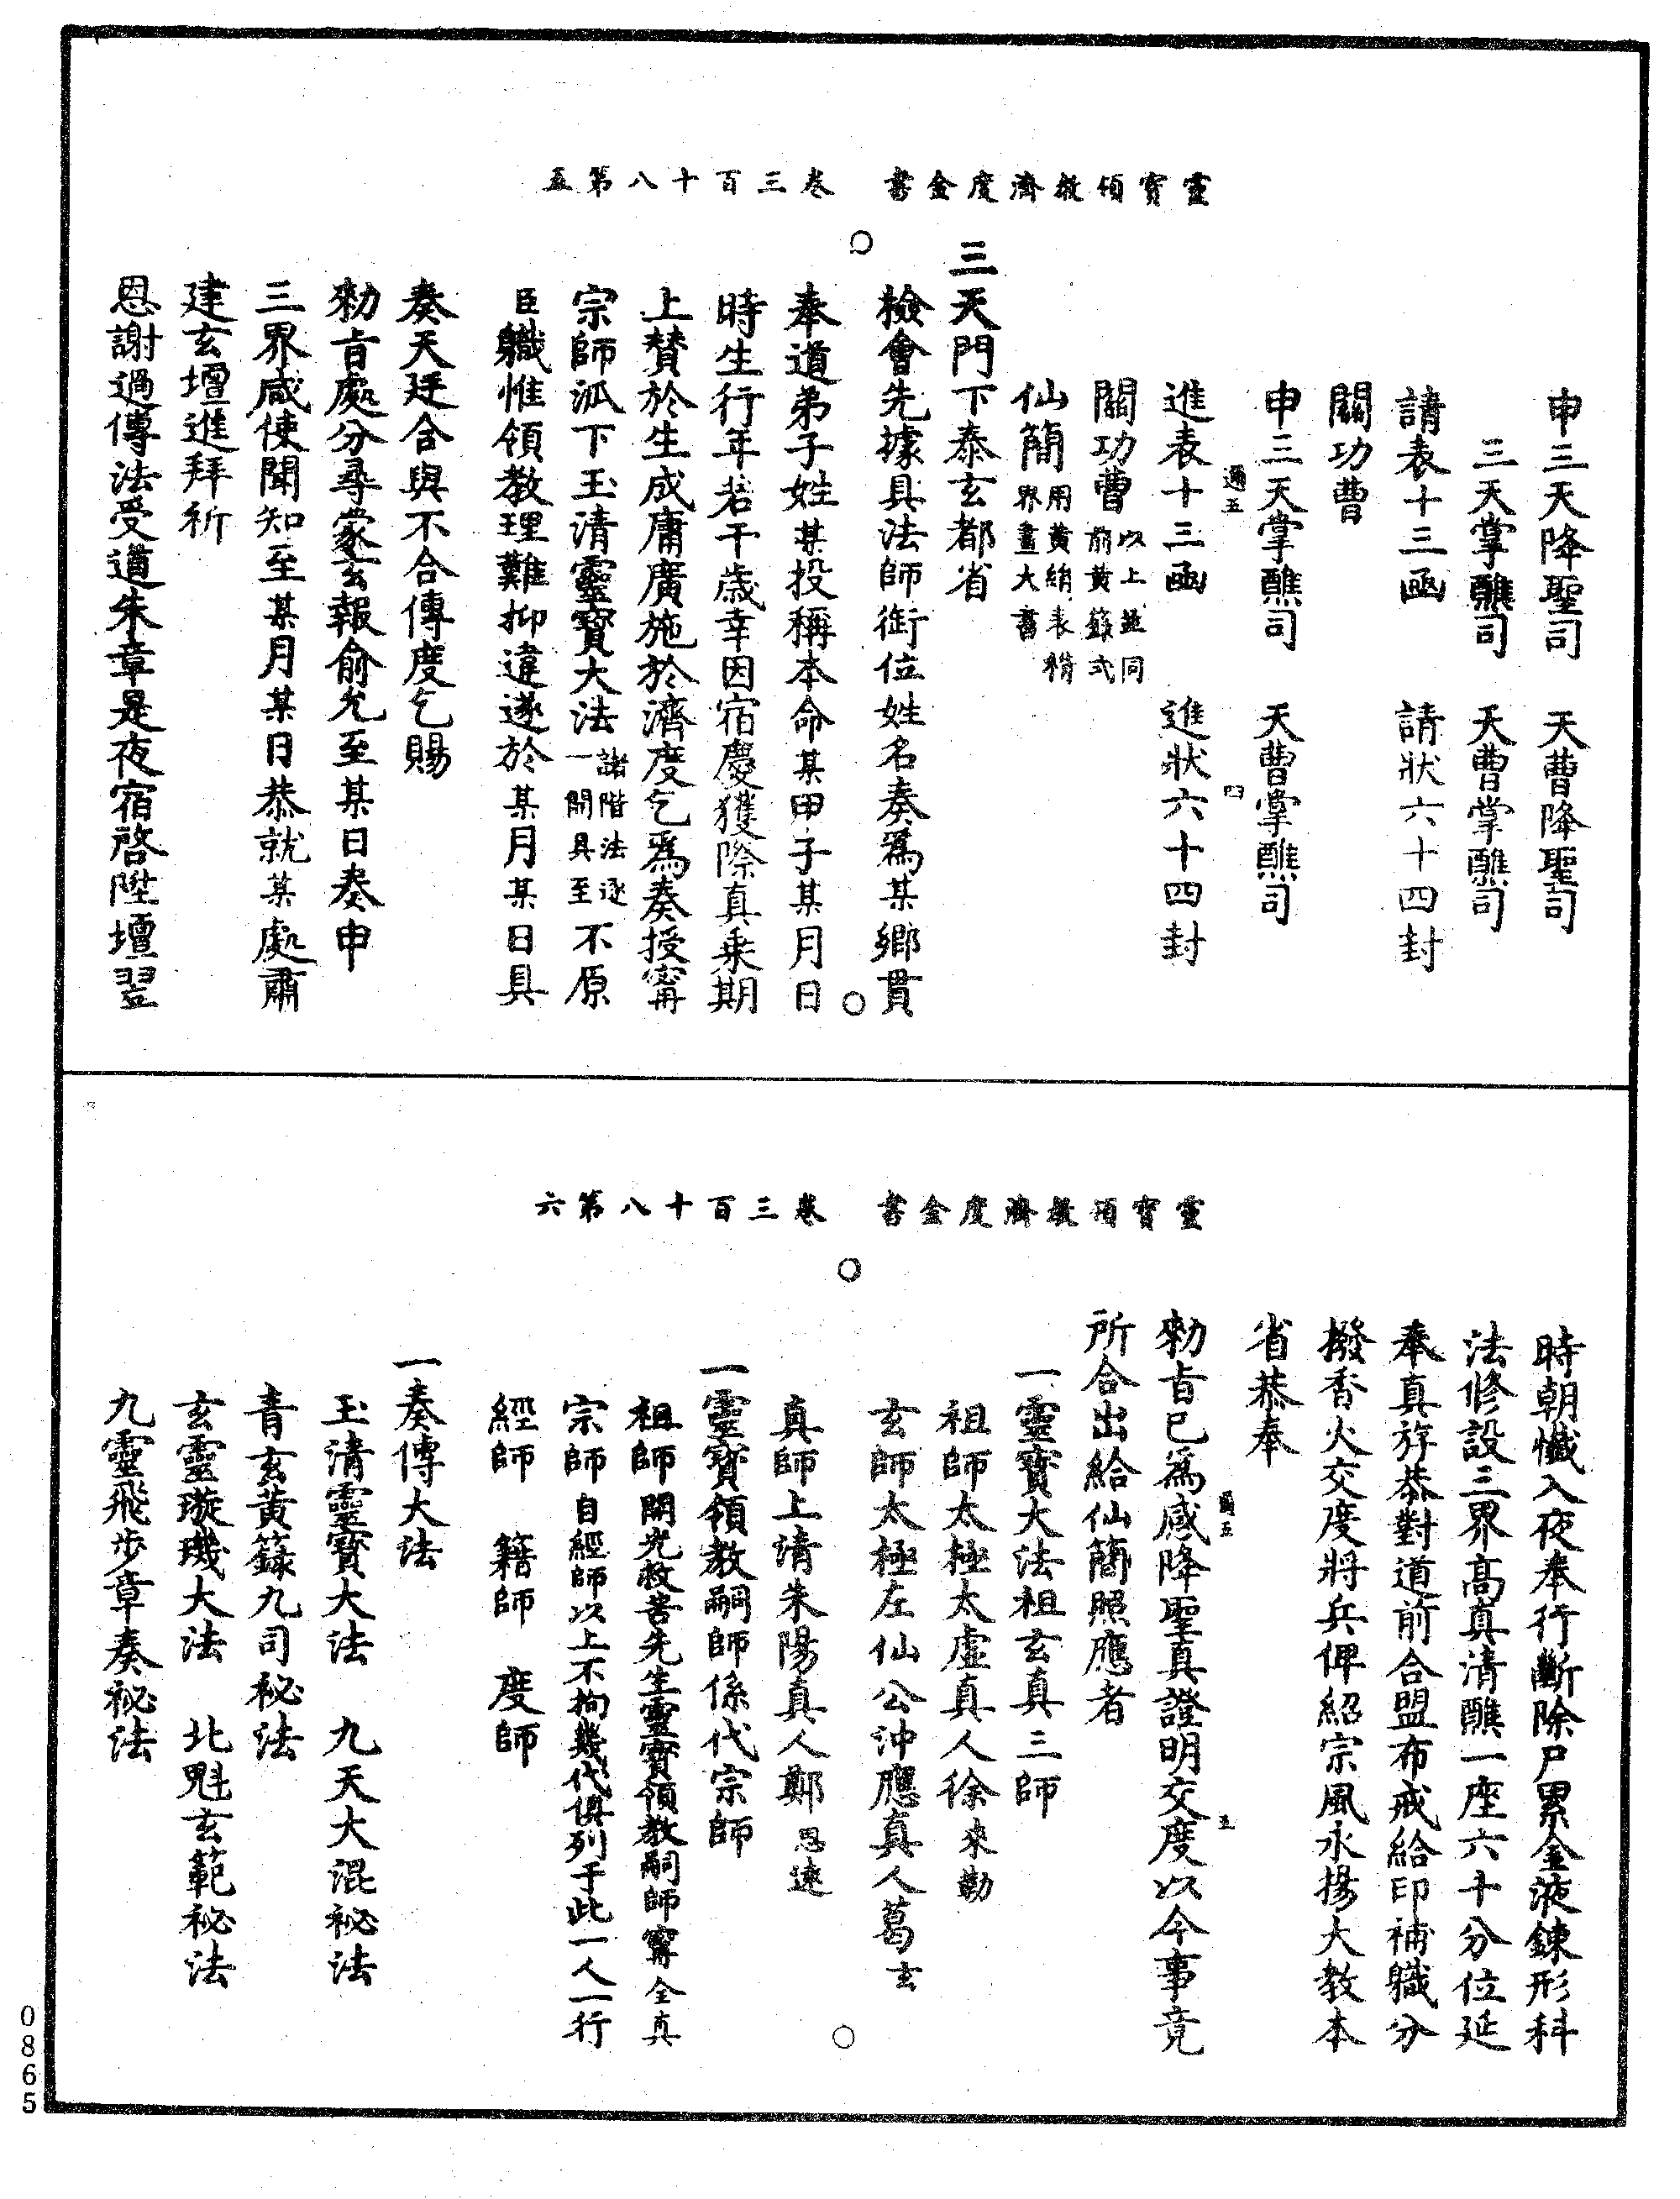 靈寶領教濟度金書　卷三百十八第五
申三天降聖司　天曹降聖司
三天掌醮司　天曹掌醮司
請表十三函　請狀六十四封
關功曹
申三天掌醮司　天曹掌醮司
四
進表十三函　進狀六十四封
關功曹以上並同前黃籙式
仙簡用黃絹表褙界畫大書
三天門下泰玄都省
檢會先據具法師銜位姓名奏爲某鄉貫
奉道弟子姓某投稱本命某甲子某月日
時生行年若干歲幸因宿慶獲際真乗期
上贊於生成庸廣施於濟度乞爲奏授甯
宗師派下玉清靈寶大法諸階法逐一開具至不原
臣職惟領教理難抑違遂於某月某日具
奏天廷合與不合傳度乞賜
勑旨處分尋蒙玄報俞允至某日奏申
三界咸使聞知至某月某日恭就某處肅
建玄壇進拜祈
恩謝過傳法受道朱章是夜宿啓陞壇翌
靈寶領教濟度金書　卷三百十八第六
時朝懺入夜奉行斷除尸累金液鍊形科
法修設三界高真清醮一座六十分位延
奉真游恭對道前合盟布戒給印補職分
撥香火交度將兵俾紹宗風永揚大教本
省恭奉
五
勑旨已爲咸降聖真證明交度以今事竟
所合出給仙簡照應者
一靈寶大法祖玄真三師
祖師太極太虛真人徐來勒
玄師太極左仙公沖應真人葛玄
真師上清朱陽真人鄭思遠
一靈寶領教嗣師係代宗師
祖師開光救苦先生靈寶領教嗣師甯全真
宗師自經師以上不拘幾代俱列于此一人一行
經師　籍師　度師
一奏傳大法
玉清靈寶大法　九天大混祕法
青玄黃籙九司祕法
玄靈璇璣大法　北魁玄範祕法
九靈飛步章奏祕法
0865